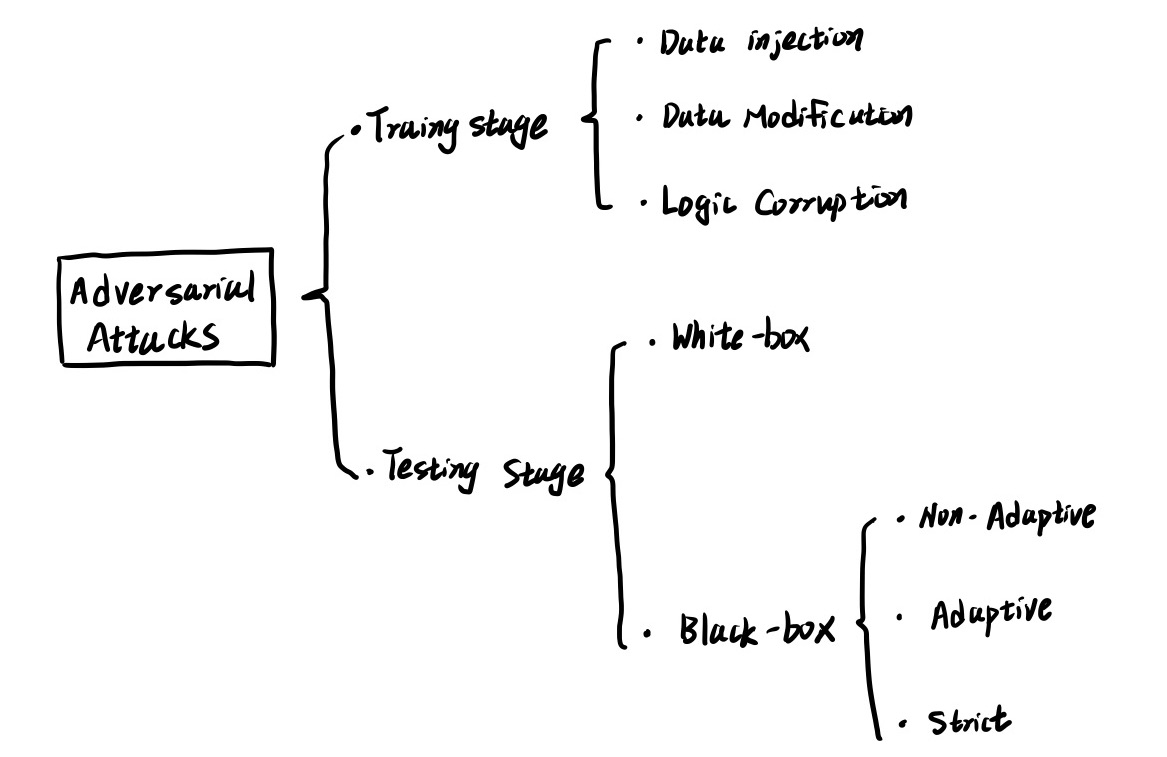 Adversarial
Attacks
• Traing stage
• Data injection
• Data Modification
• Logic Corruption
• Testing Stage
• White-box
• Black-box
• Non-Adaptive
• Adaptive
• Strict